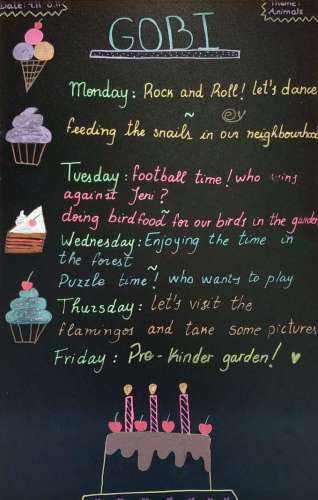 Date: 4.11-8.11
Theme:
Animals
GOBI
Monday: Rock and Roll! let's dance
~
feeding the snails in our neighbourhood
Tuesday: football time! who wins
against Jeni?
~
doing birdfood for our birds in the garden
Wednesday: Enjoying the time in
the forest
~
Puzzle time! who wants to play
Thursday: let's visit the
flamingos and take some pictures
Friday: Pre-Kinder garden! ♥